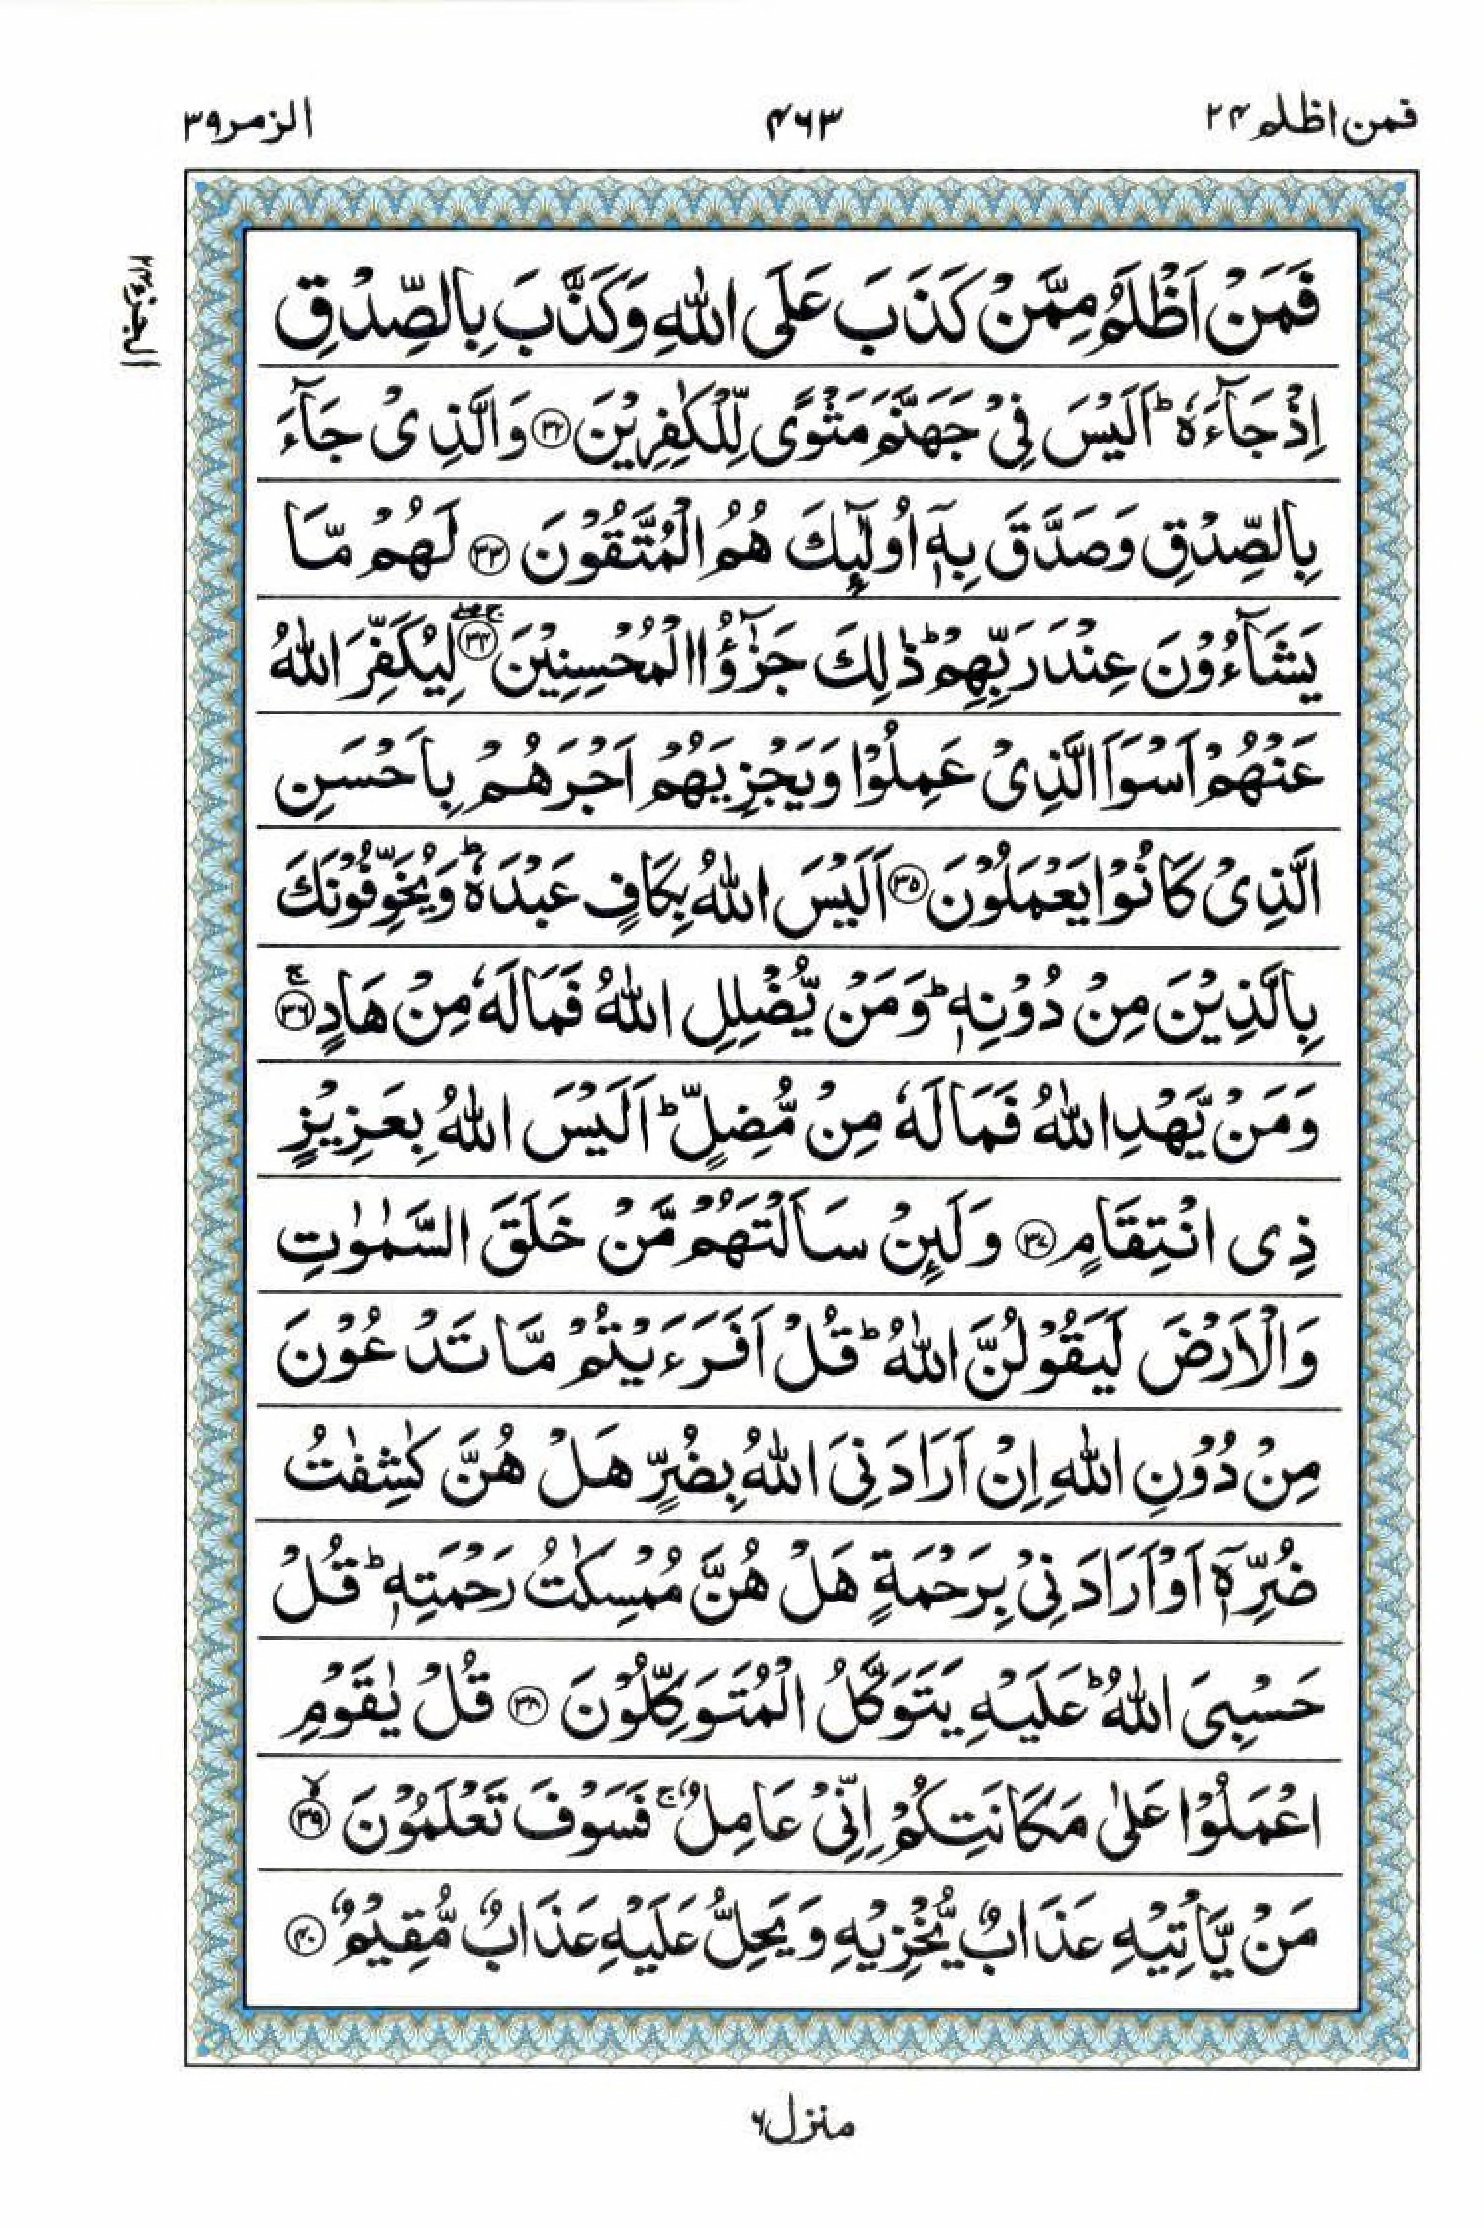 فمن اظلم ۲۴
۴۶۳
الزمر ۳۹
الجزء ۲۴
فَمَنْ اَظْلَمُ مِمَّنْ كَذَبَ عَلَى اللّٰهِ وَكَذَّبَ بِالصِّدْقِ
اِذْ جَآءَهٗ ؕ اَلَيْسَ فِيْ جَهَنَّمَ مَثْوًى لِّلْكٰفِرِيْنَ ۝۳۲ وَالَّذِيْ جَآءَ
بِالصِّدْقِ وَصَدَّقَ بِهٖٓ اُولٰٓئِكَ هُمُ الْمُتَّقُوْنَ ۝۳۳ لَهُمْ مَّا
يَشَآءُوْنَ عِنْدَ رَبِّهِمْ ؕ ذٰلِكَ جَزٰٓؤُا الْمُحْسِنِيْنَ ۝۳۴ۚۖ لِيُكَفِّرَ اللّٰهُ
عَنْهُمْ اَسْوَاَ الَّذِيْ عَمِلُوْا وَيَجْزِيَهُمْ اَجْرَهُمْ بِاَحْسَنِ
الَّذِيْ كَانُوْا يَعْمَلُوْنَ ۝۳۵ اَلَيْسَ اللّٰهُ بِكَافٍ عَبْدَهٗ ؕ وَيُخَوِّفُوْنَكَ
بِالَّذِيْنَ مِنْ دُوْنِهٖ ؕ وَمَنْ يُّضْلِلِ اللّٰهُ فَمَا لَهٗ مِنْ هَادٍ ۝۳۶ۚ
وَمَنْ يَّهْدِ اللّٰهُ فَمَا لَهٗ مِنْ مُّضِلٍّ ؕ اَلَيْسَ اللّٰهُ بِعَزِيْزٍ
ذِي انْتِقَامٍ ۝۳۷ وَلَئِنْ سَاَلْتَهُمْ مَّنْ خَلَقَ السَّمٰوٰتِ
وَالْاَرْضَ لَيَقُوْلُنَّ اللّٰهُ ؕ قُلْ اَفَرَءَيْتُمْ مَّا تَدْعُوْنَ
مِنْ دُوْنِ اللّٰهِ اِنْ اَرَادَنِيَ اللّٰهُ بِضُرٍّ هَلْ هُنَّ كٰشِفٰتُ
ضُرِّهٖٓ اَوْ اَرَادَنِيْ بِرَحْمَةٍ هَلْ هُنَّ مُمْسِكٰتُ رَحْمَتِهٖ ؕ قُلْ
حَسْبِيَ اللّٰهُ ؕ عَلَيْهِ يَتَوَكَّلُ الْمُتَوَكِّلُوْنَ ۝۳۸ قُلْ يٰقَوْمِ
اعْمَلُوْا عَلٰى مَكَانَتِكُمْ اِنِّيْ عَامِلٌ ۚ فَسَوْفَ تَعْلَمُوْنَ ۝۳۹ۙ
مَنْ يَّاْتِيْهِ عَذَابٌ يُّخْزِيْهِ وَيَحِلُّ عَلَيْهِ عَذَابٌ مُّقِيْمٌ ۝۴۰
منزل ۶